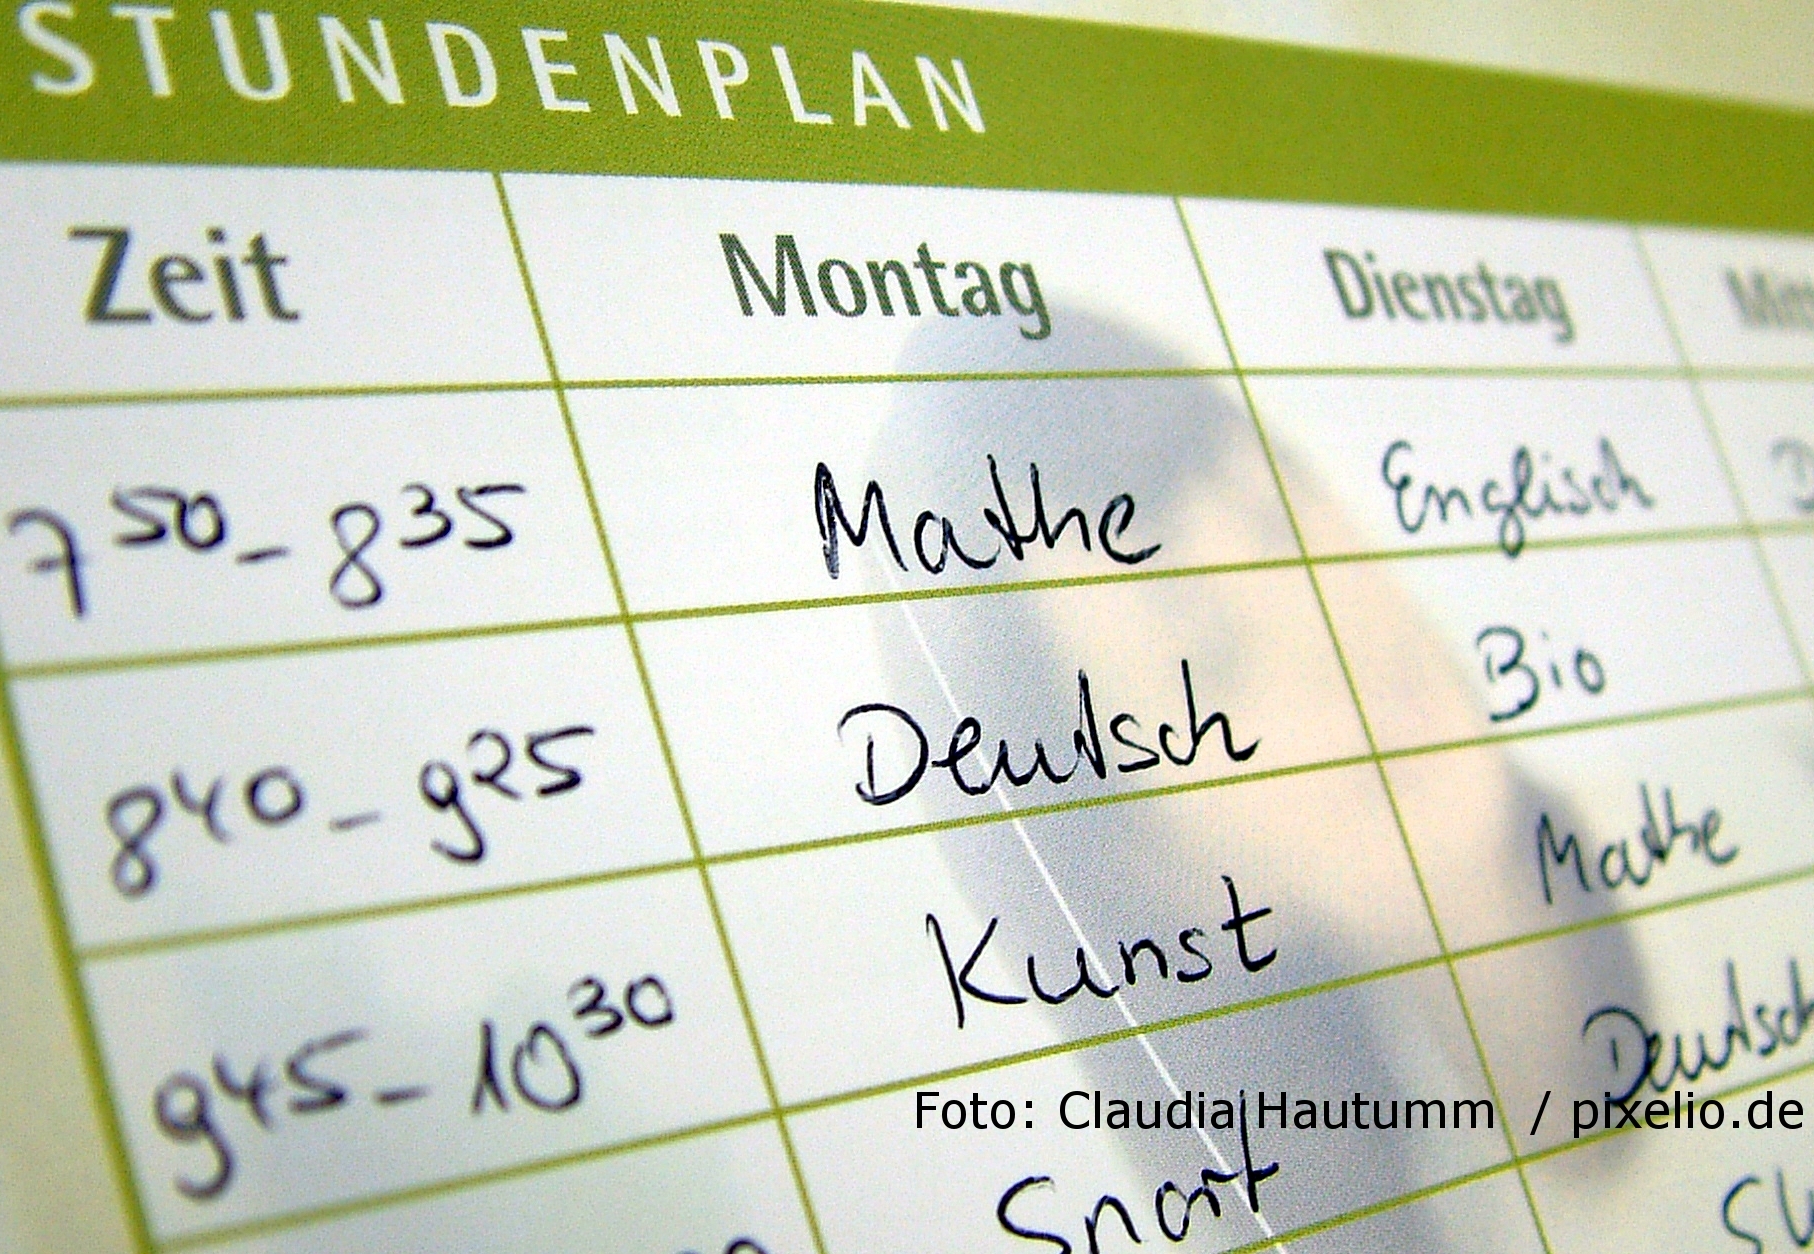 STUNDENPLAN
Zeit Montag Dienstag
7 50 - 8 35 Mathe Englisch
8 40 - 9 25 Deutsch Bio
9 45 - 10 30 Kunst Mathe
Sport Deutsch
Foto: Claudia Hautumm / pixelio.de